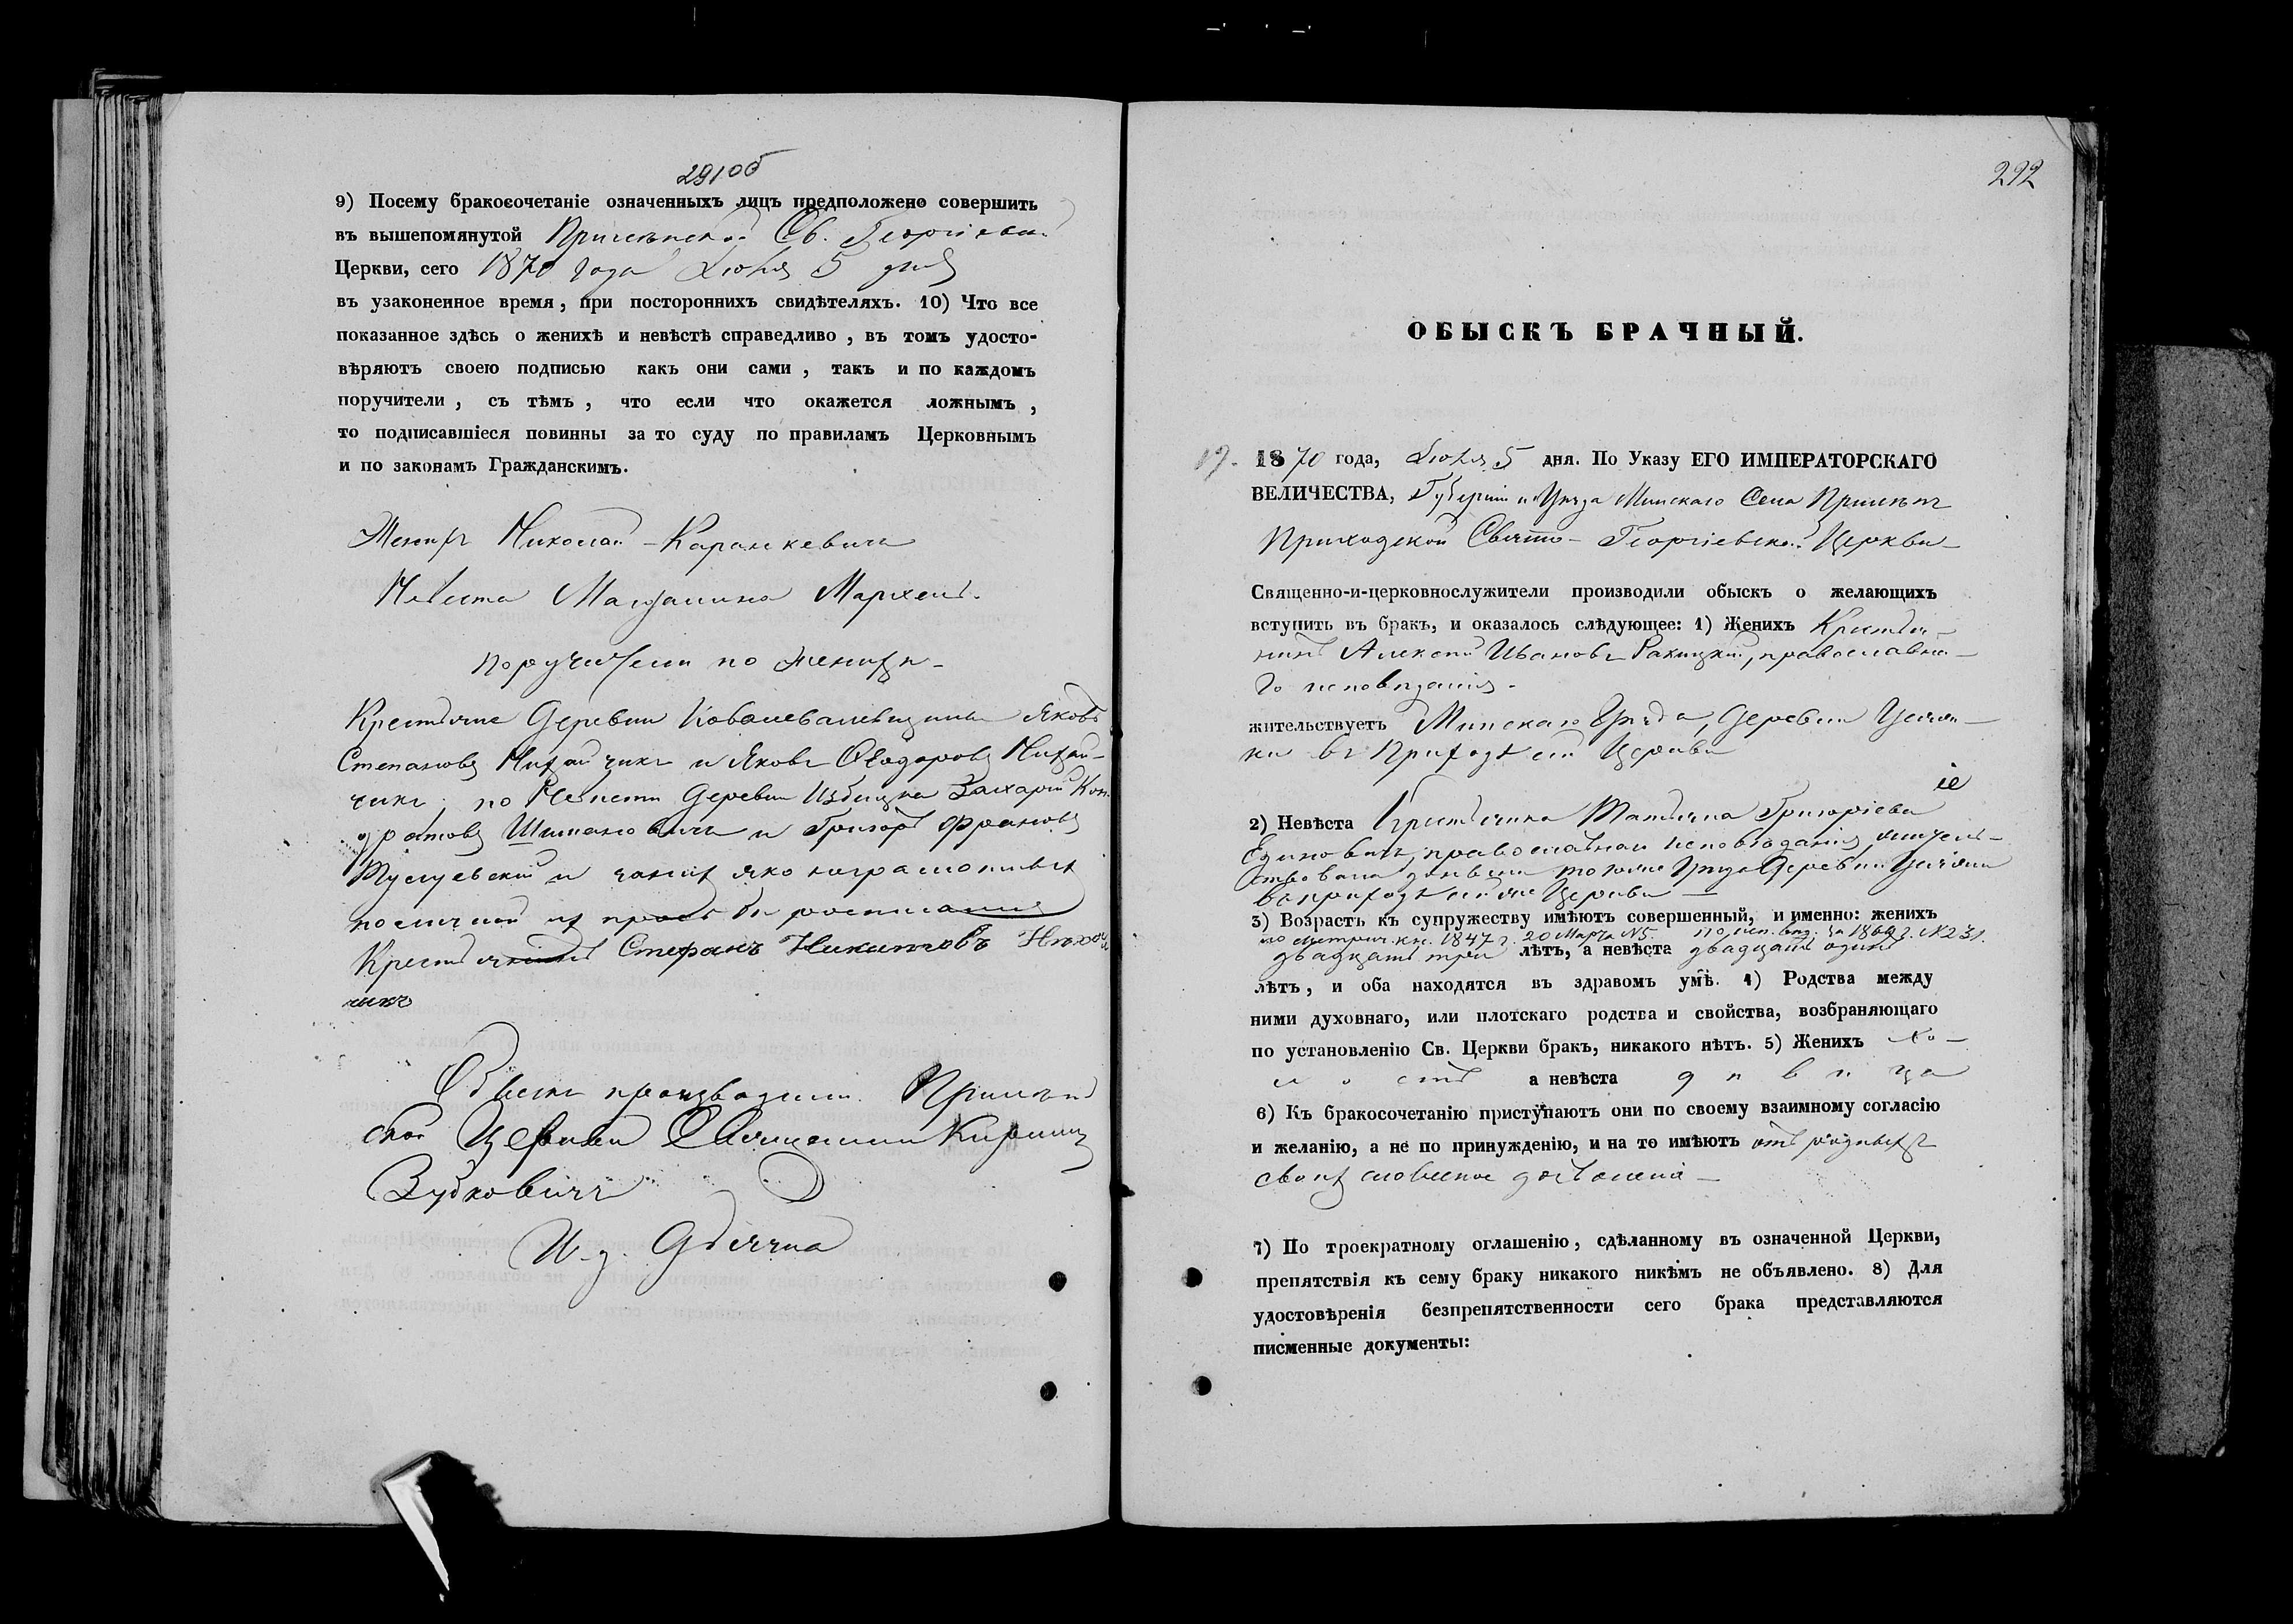 291об
9) Посему бракосочетаніе означенныхъ лицъ предположено совершить
въ вышепомянутой Св. Георгіевской
Церкви, сего 1870 года Іюля 5 дня
въ узаконенное время, при постороннихъ свидѣтеляхъ. 10) Что все
показанное здѣсь о женихѣ и невѣстѣ справедливо, въ томъ удосто-
вѣряютъ своею подписью какъ они сами, такъ и по каждомъ
поручители, съ тѣмъ, что если что окажется ложнымъ,
то подписавшіеся повинны за то суду по правиламъ Церковнымъ
и по законамъ Гражданскимъ.
Женихъ Николай Каранкевичъ
Невеста Магдалина
поручители по женихѣ
Крестьяне Деревни Яковъ
Степановъ и Яковъ Ѳеодоровъ
чикъ, по Невести Деревни Захарій Кон-
дратовъ Шиманович и Григорій Франковъ
и за нихъ яко неграмотныхъ
по личной их просьбе росписался
Крестьянинъ Стефанъ Никитовъ
чикъ
Обыскъ производили
ской Церкви Священникъ Кириллъ
Зубковичъ
И. д. Дьячка
292
ОБЫСКЪ БРАЧНЫЙ.
17. 1870 года, Іюля 5 дня. По Указу ЕГО ИМПЕРАТОРСКАГО
ВЕЛИЧЕСТВА, Губерніи и Уѣзда Минскаго Села Прилѣпъ
Приходской Свято-Георгіевской Церкви
Священно-и-церковнослужители производили обыскъ о желающихъ
вступить въ бракъ, и оказалось слѣдующее: 1) Женихъ Крестья-
нинъ Алексѣй Ивановъ Ракицкій, православна-
го исповѣданія.
жительствуетъ Минскаго Уѣзда, Деревни
ки въ Приходѣ сей Церкви
2) Невѣста Крестьянка Татьяна Григоріева
православнаго исповѣданія, жительст-
вовала доныне того же Уѣзда Деревни
въ приходѣ сей же Церкви
3) Возрастъ къ супружеству имѣютъ совершенный, и именно: женихъ
по метрич. кн. 1847 г. 20 Марта N5. по исп. вѣд. за 1869 г. N231.
двадцать три лѣтъ, а невѣста двадцать одинъ
лѣтъ, и оба находятся въ здравомъ умѣ. 4) Родства между
ними духовнаго, или плотскаго родства и свойства, возбраняющаго
по установленію Св. Церкви бракъ, никакого нѣтъ. 5) Женихъ хо-
лостъ а невѣста дѣвица
6) Къ бракосочетанію приступаютъ они по своему взаимному согласію
и желанію, а не по принужденію, и на то имѣютъ отъ родныхъ
своихъ словесное дозволеніе
7) По троекратному оглашенію, сдѣланному въ означенной Церкви,
препятствія къ сему браку никакого никѣмъ не объявлено. 8) Для
удостовѣренія безпрепятственности сего брака представляются
писменные документы: